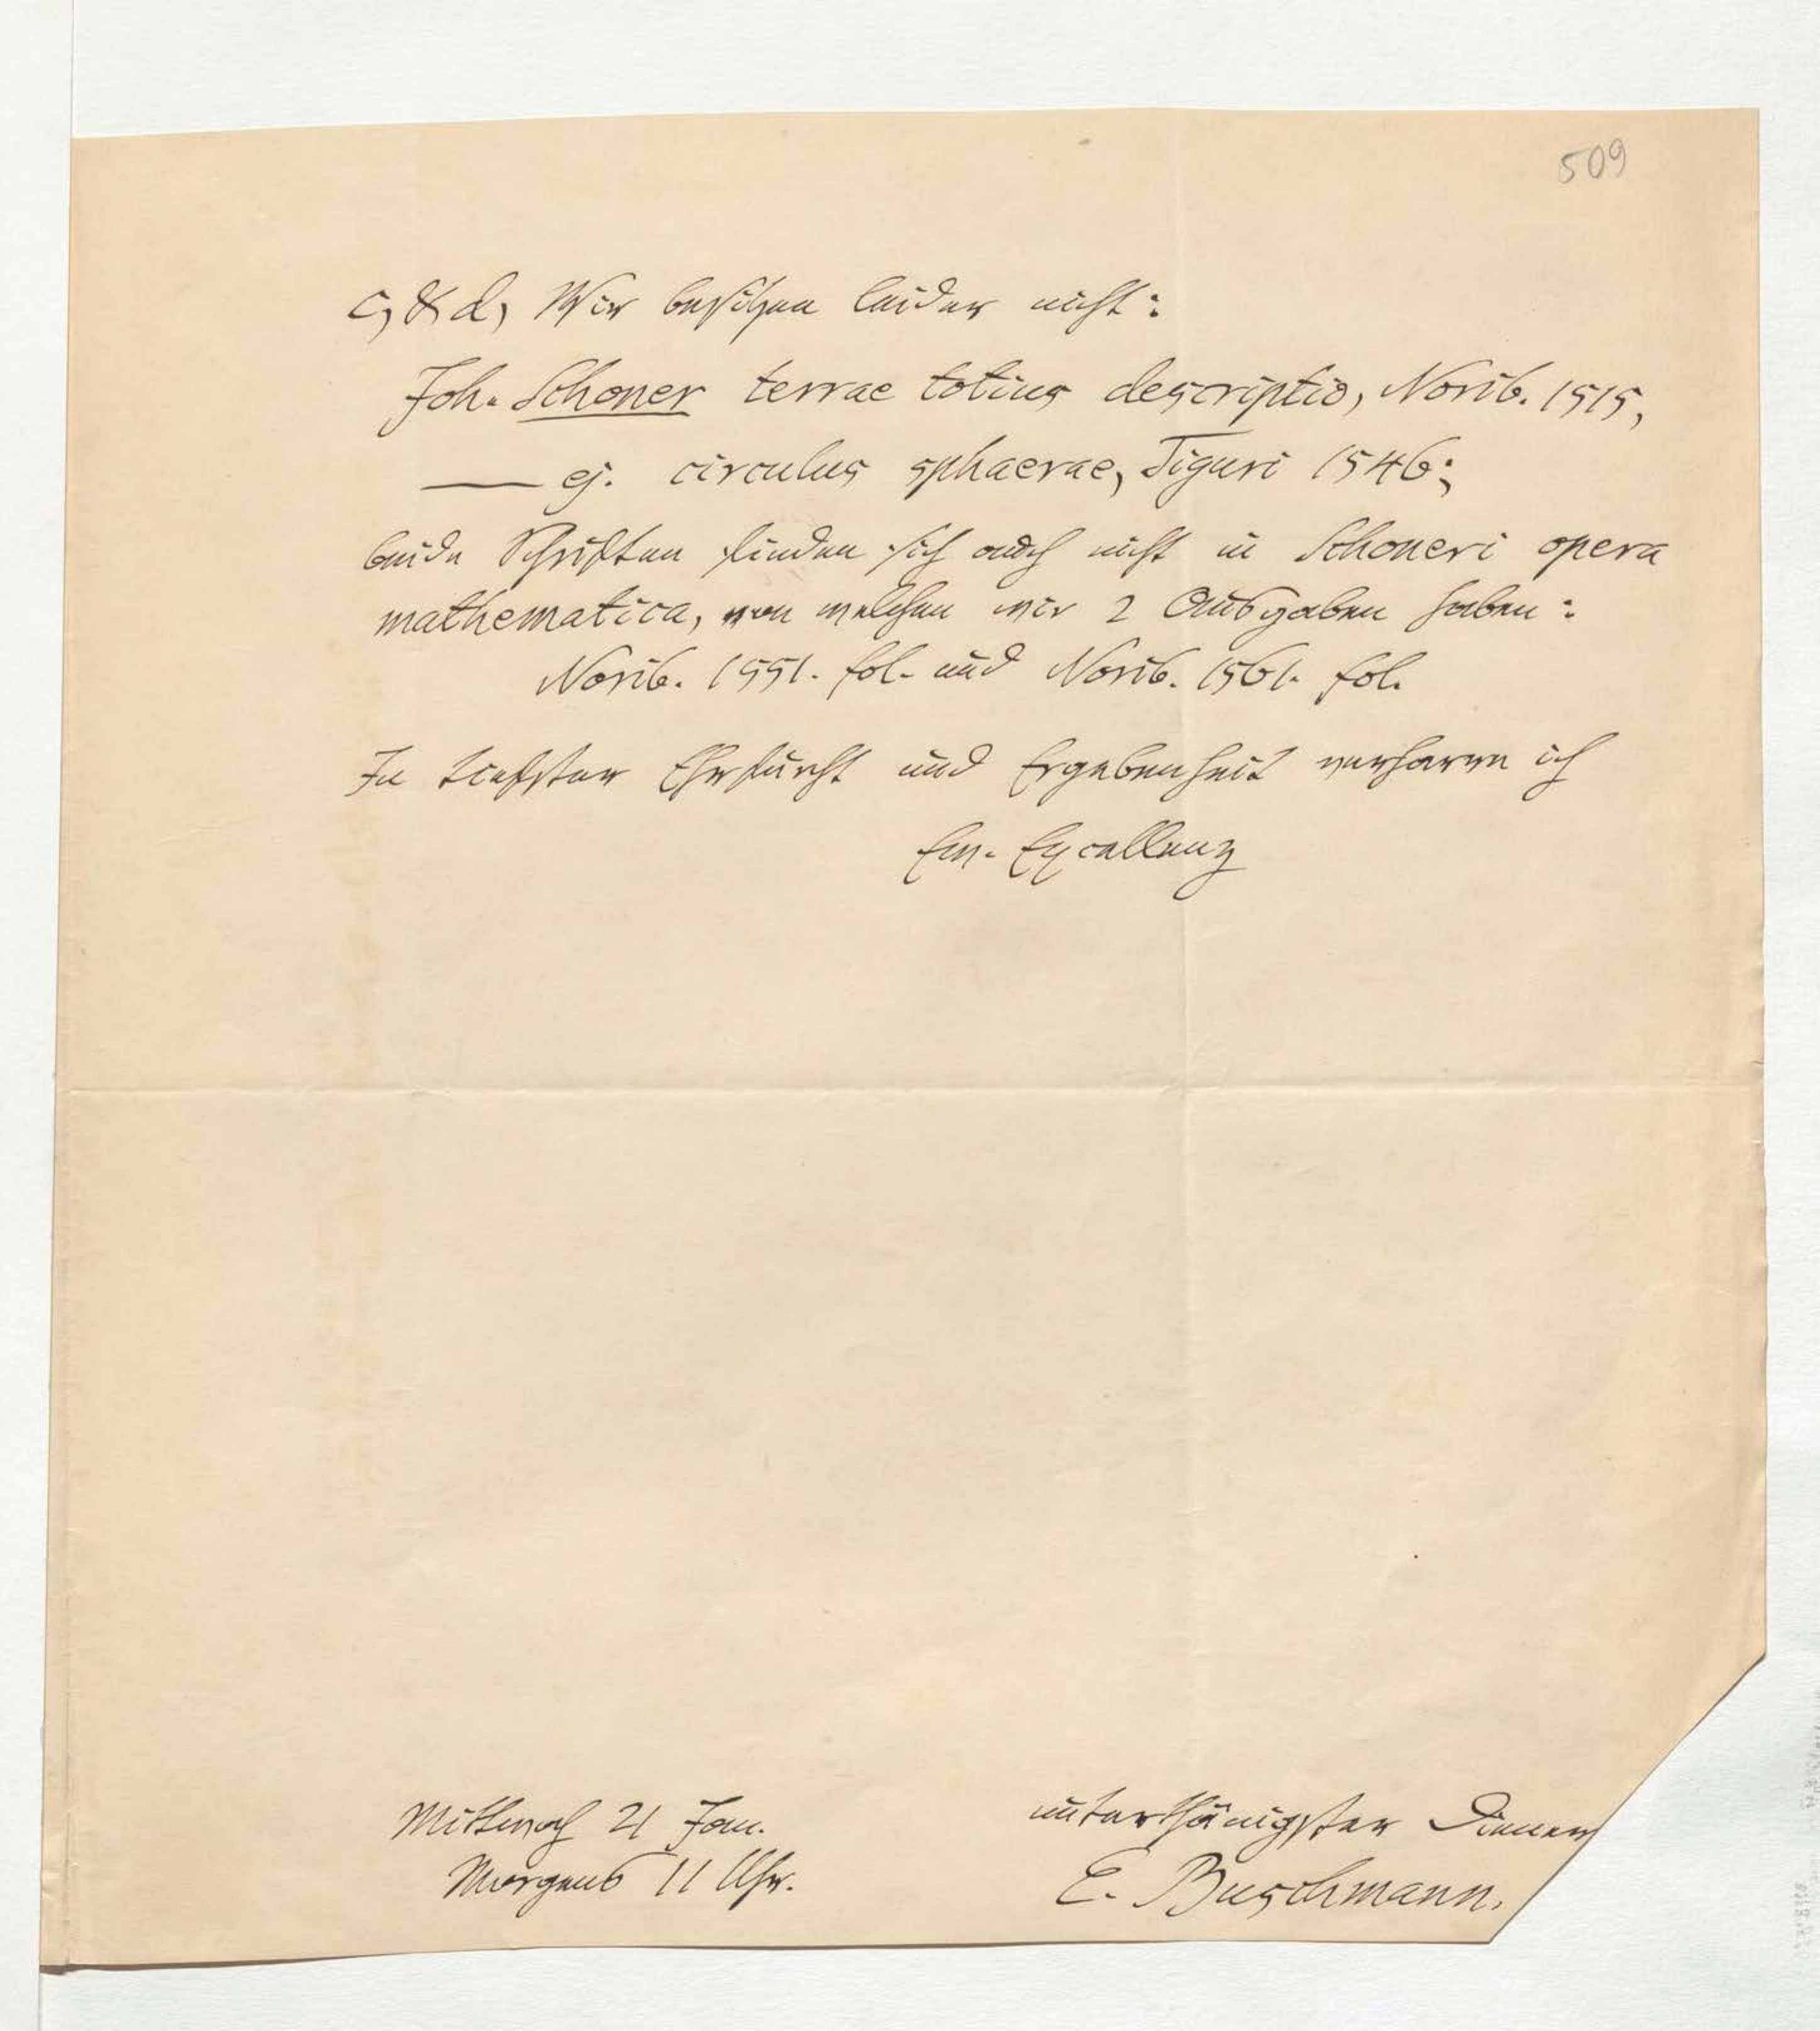 509
c, & d, Wir besitzen leider nicht:
Joh. Schoner terrae totius descriptio, Norib. 1515,
— ej. circulus sphaerae, Tiguri 1546;
beide Schriften finden sich auch nicht in Schoneri opera
mathematica, von welchen wir 2 Ausgaben haben:
Norib. 1551. fol. und Norib. 1561. fol.
In tiefster Ehrfurcht und Ergebenheit verharre ich
Ew. Excellenz
Mittwoch 21 Jan.
Morgens 11 Uhr.
unterthänigster Diener
E. Buschmann.